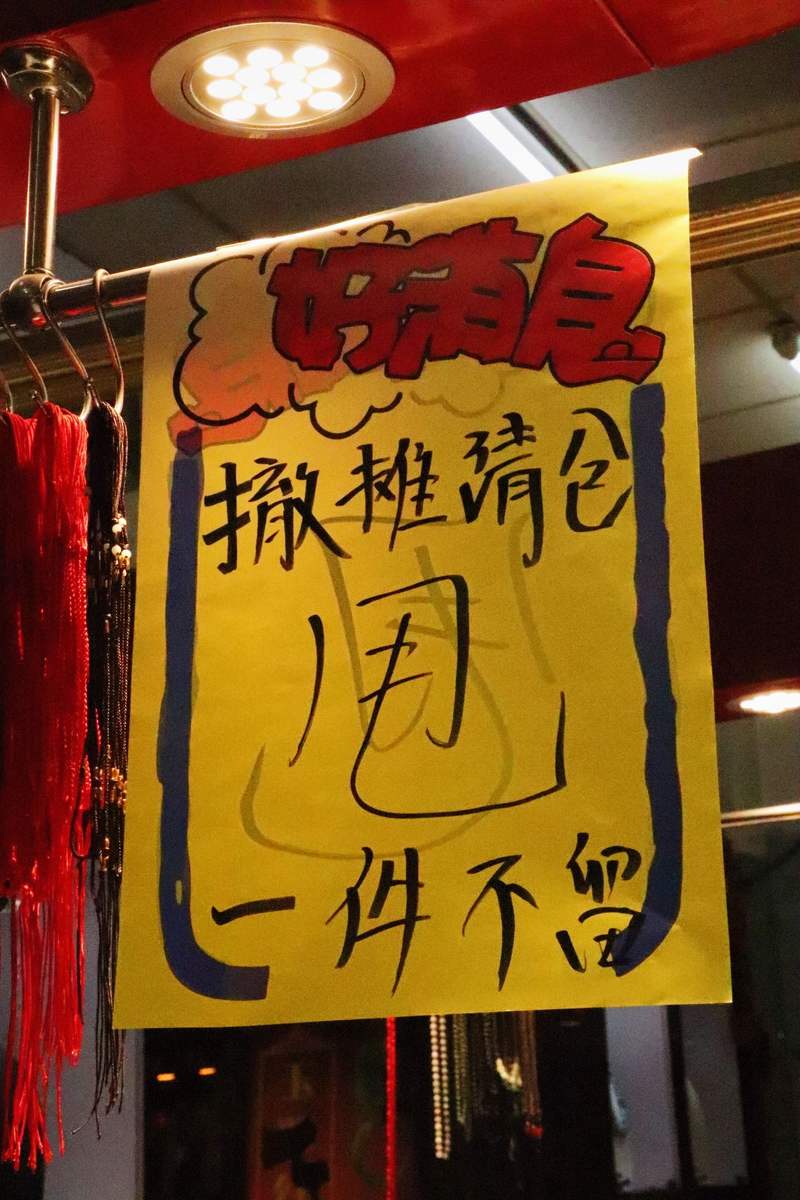 好消息
撤摊清仓
甩
一件不留